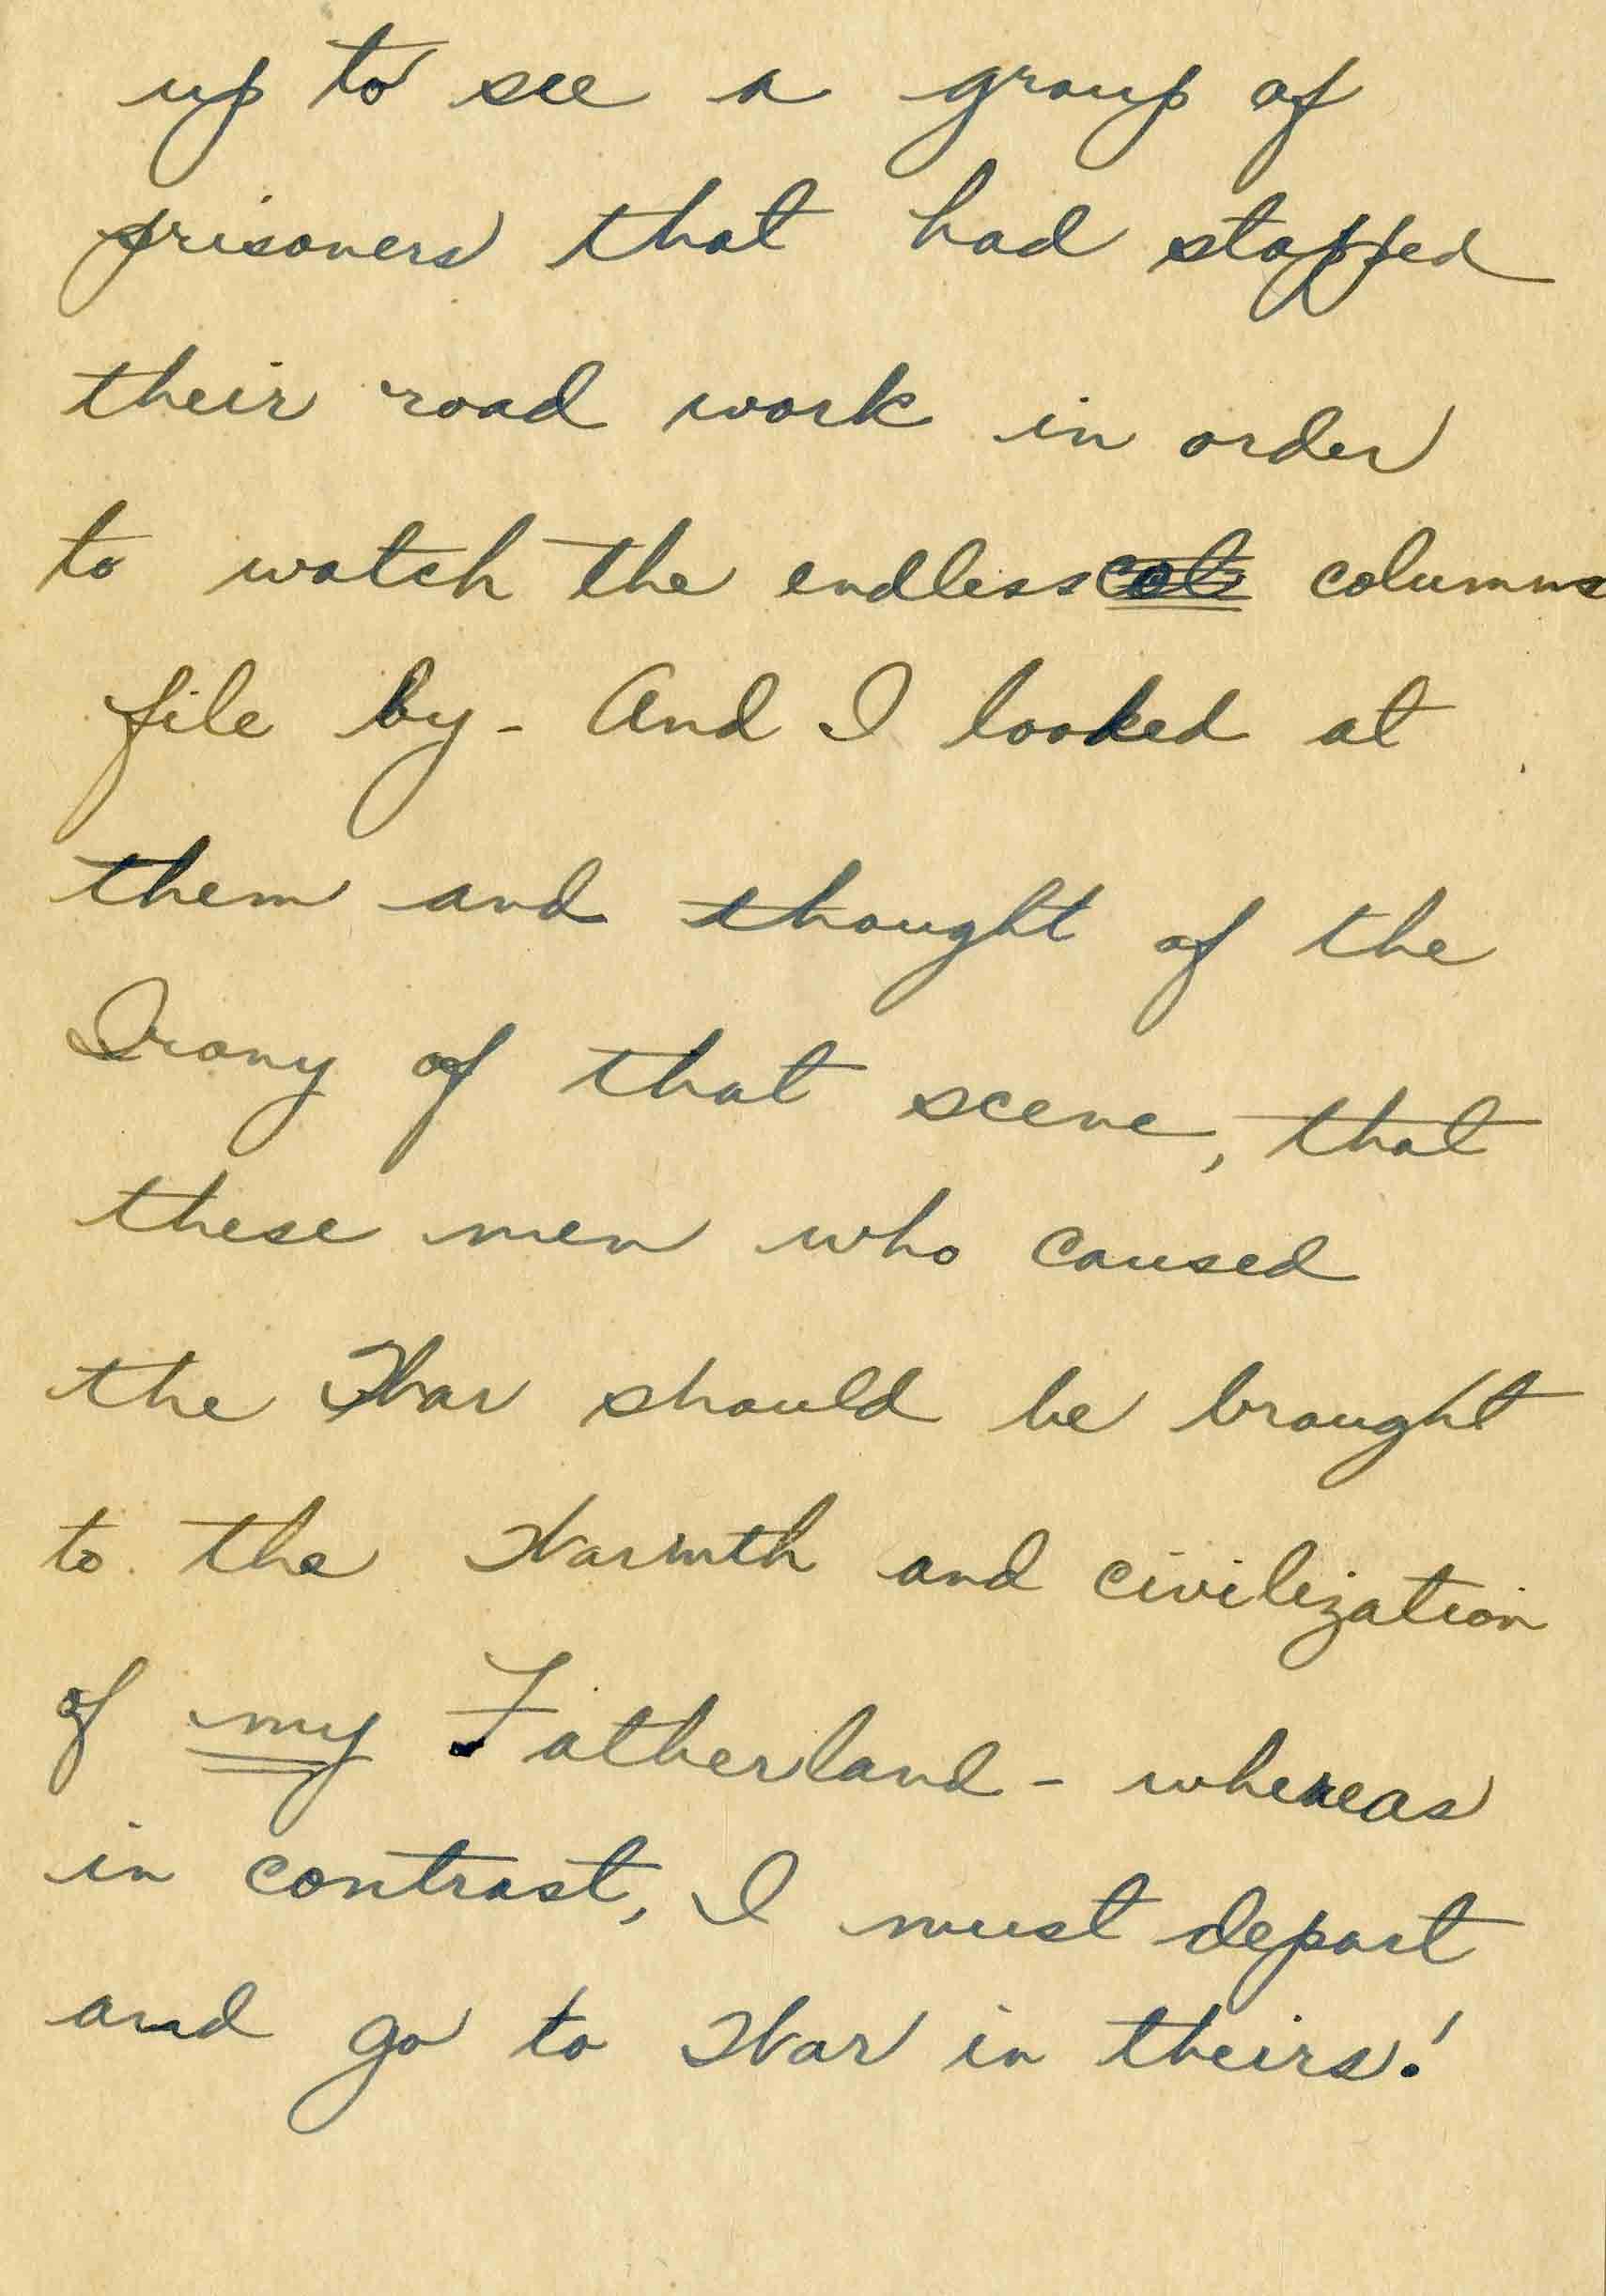 up to see a group of
prisoners that had stopped
their road work in order
to watch the endless cols columns
file by - And I looked at
them and thought of the
Irony of that scene, that
these men who caused
the War should be brought
to the Warmth and civilization
of my Fatherland - whereas
in contrast, I must depart
and go to War in theirs!